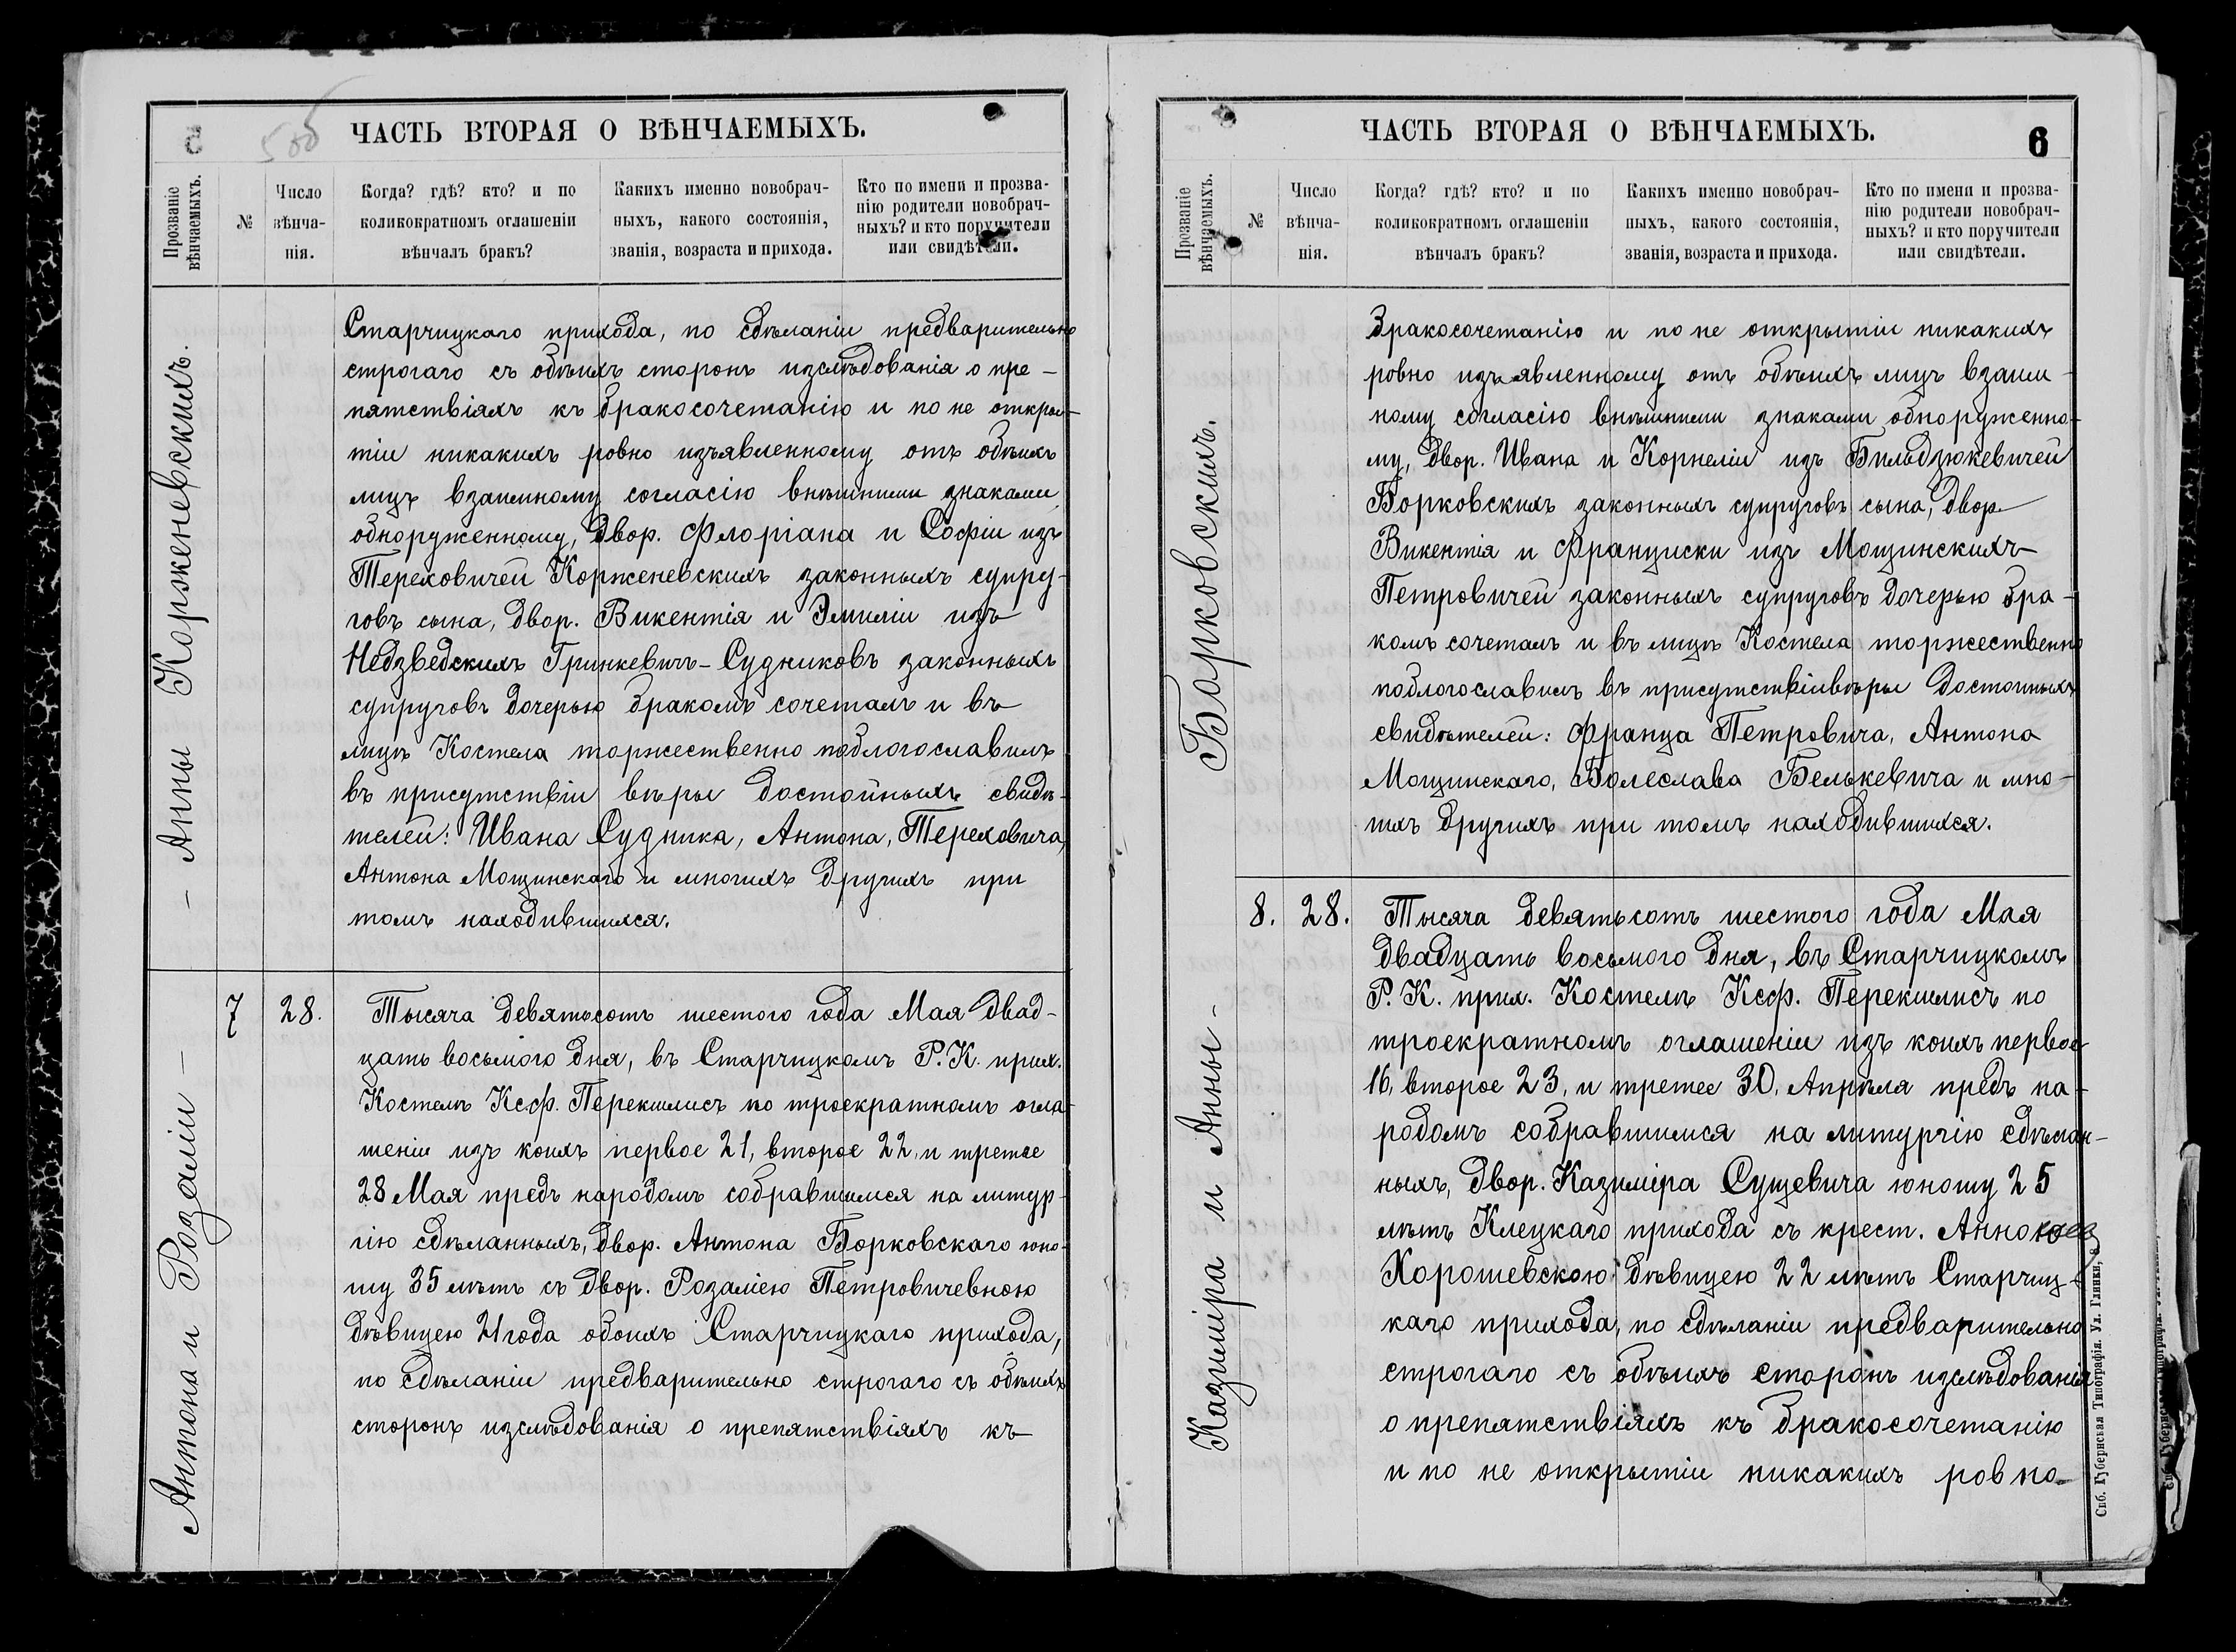 5
ЧАСТЬ ВТОРАЯ О ВѢНЧАЕМЫХЪ.
Прозваніе вѣнчаемыхъ.
№
Число вѣнча-нія.
Когда? гдѣ? кто? и по коликократномъ оглашеніи вѣнчалъ бракъ?
Какихъ именно новобрач-ныхъ, какого состоянія, званія, возраста и прихода.
Кто по имени и прозва-нію родители новобрач-ныхъ? и кто поручители или свидѣтели.
— Анны Корженевскихъ.
Старчицкаго прихода, по сдѣланіи предварительно
строгаго съ обѣихъ сторонъ изслѣдованія о пре-
пятствіяхъ къ бракосочетанію и по не откры-
тіи никакихъ ровно изъявленному отъ обѣихъ
лицъ взаимному согласію внѣшними знаками
обноруженному, двор. Флоріана и Софіи изъ
Тереховичей Корженевскихъ законныхъ супру-
говъ сына, двор. Викентія и Эмиліи изъ
Недзведскихъ Гринкевичъ-Судниковъ законныхъ
супруговъ дочерью бракомъ сочеталъ и въ
лицѣ Костела торжественно поблогославилъ
въ присутствіи вѣры достойныхъ свидѣ-
телей: Ивана Судника, Антона, Тереховича,
Антона Мощинскаго и многихъ другихъ при
томъ находившихся.
Антона и Розаліи —
7
28.
Тысяча девятьсотъ шестого года Мая двад-
цать восьмого дня, въ Старчицкомъ Р. К. прих.
Костелѣ Ксф. Перекшлисъ по троекратномъ огла-
шеніи изъ коихъ первое 21, второе 22, и третее
28 Мая предъ народомъ собравшимся на литур-
гію сдѣланныхъ, двор. Антона Борковскаго юно-
шу 35 лѣтъ съ двор. Розаліею Петровичевною
дѣвицею 21 года обоихъ Старчицкаго прихода,
по сдѣланіи предварительно строгаго съ обѣихъ
сторонъ изслѣдованія о препятствіяхъ къ
ЧАСТЬ ВТОРАЯ О ВѢНЧАЕМЫХЪ.
6
Прозваніе вѣнчаемыхъ.
№
Число вѣнча-нія.
Когда? гдѣ? кто? и по коликократномъ оглашеніи вѣнчалъ бракъ?
Какихъ именно новобрач-ныхъ, какого состоянія, званія, возраста и прихода.
Кто по имени и прозва-нію родители новобрач-ныхъ? и кто поручители или свидѣтели.
Борковскихъ.
бракосочетанію и по не открытіи никакихъ
ровно изъявленному отъ обѣихъ лицъ взаим-
ному согласію внѣшними знаками обноруженно-
му, двор. Ивана и Корнеліи изъ Бильдзюкевичей
Борковскихъ законныхъ супруговъ сына, двор.
Викентія и Франциски изъ Мощинскихъ
Петровичей законныхъ супруговъ дочерью бра-
комъ сочеталъ и въ лицѣ Костела торжественно
поблогославилъ въ присутствіи вѣры достойныхъ
свидѣтелей: Франца Петровича, Антона
Мощинскаго, Болеслава Белькевича и мно-
гихъ другихъ при томъ находившихся.
Казиміра и Анны —
8.
28.
Тысяча девятьсотъ шестого года Мая
двадцать восьмого дня, въ Старчицкомъ
Р. К. прих. Костелѣ Ксф. Перекшлисъ по
троекратномъ оглашеніи изъ коихъ первое
16, второе 23, и третее 30, Апрѣля предъ на-
родомъ собравшимся на литургію сдѣлан-
ныхъ, двор. Казиміра Сущевича юношу 25
лѣтъ Клецкаго прихода съ крест. Анною
Хорошевскою дѣвицею 22 лѣтъ Старчиц-
каго прихода, по сдѣланіи предварительно
строгаго съ обѣихъ сторонъ изслѣдованія
о препятствіяхъ къ бракосочетанію
и по не открытіи никакихъ ровно
Спб. Губернская Типографія. Ул. Глинки, 8